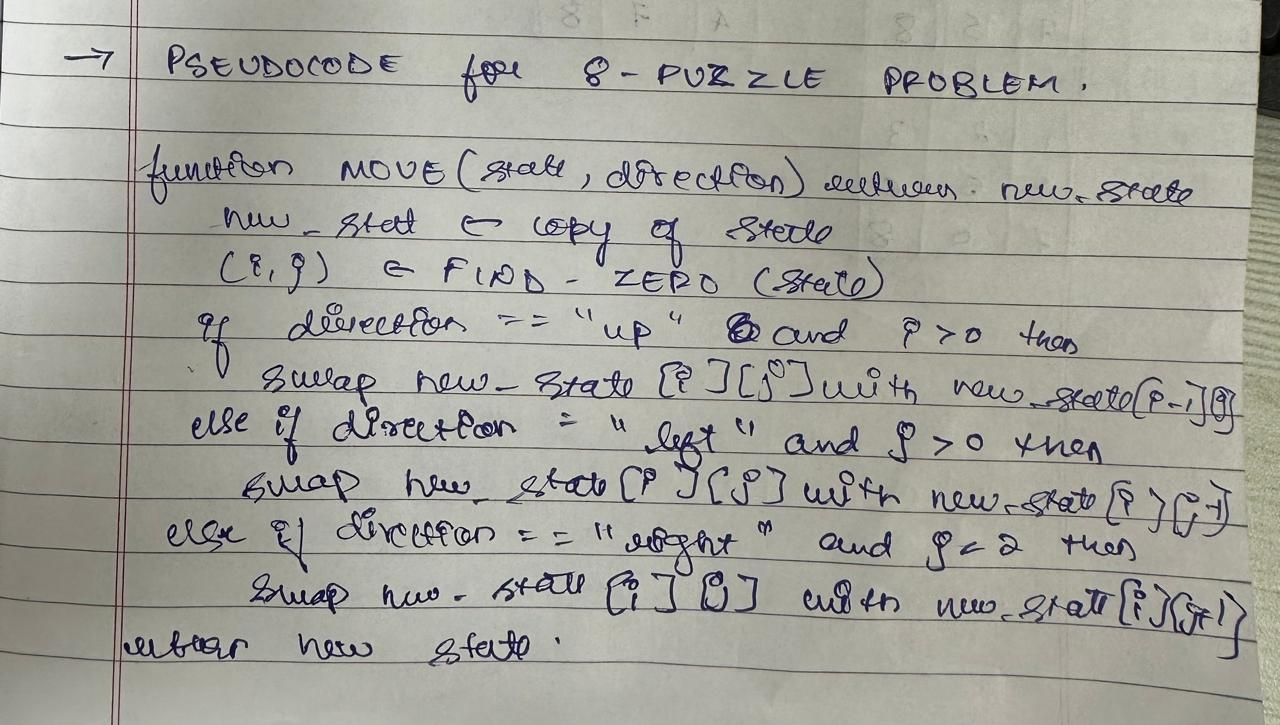 → PSEUDOCODE for 8-PUZZLE PROBLEM.
function MOVE (state, direction) returns new_state
new_state ← copy of state
(i, j) ← FIND-ZERO (state)
if direction == "up" and i > 0 then
swap new_state [i][j] with new_state[i-1][j]
else if direction = "left" and j > 0 then
swap new_state [i][j] with new_state [i][j-1]
else if direction == "right" and j < 2 then
swap new_state [i][j] with new_state [i][j+1]
return new state.